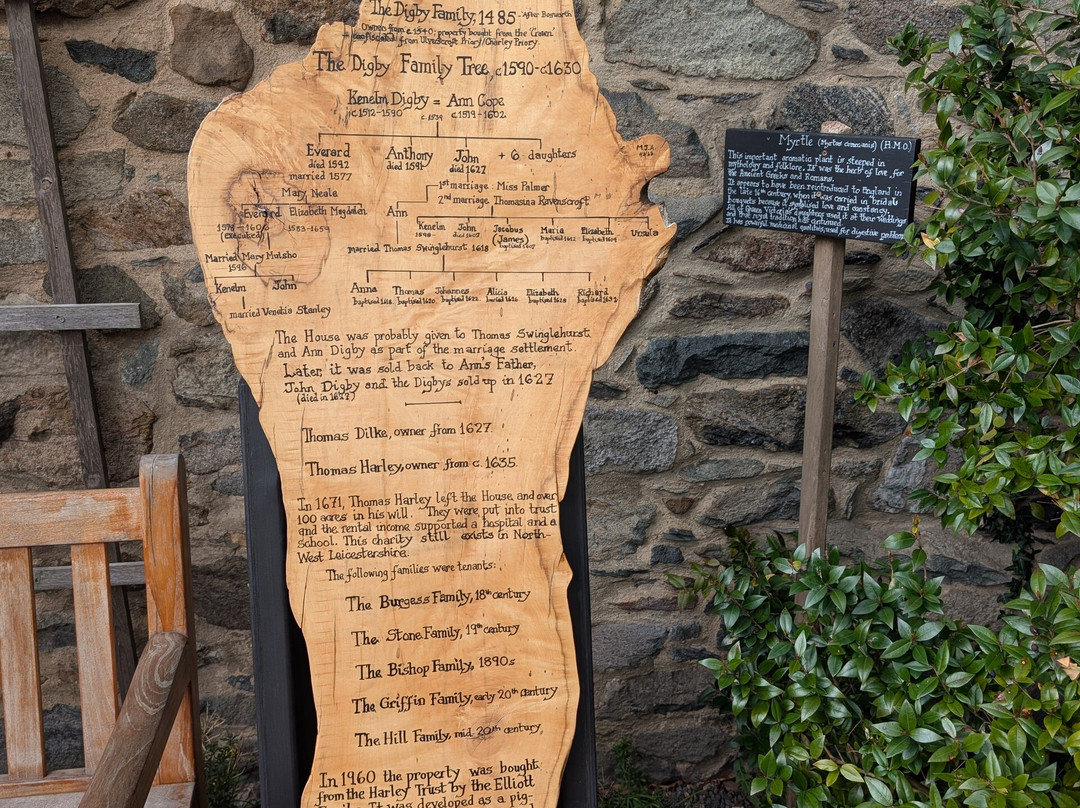 The Digby Family, 1485 - After Bosworth
Owned from c.1540; property bought from the 'Crown'
confiscated from Ulverscroft Priory/Charley Priory.
The Digby Family Tree, c1590-c1630
Kenelm Digby = Ann Cope
c1512-1590 c.1539 c1519-1602
Everard Anthony John + 6 daughters
died 1592 died 1591 died 1627
married 1577
M.J.A.
Mary Neale
1st marriage Miss Palmer
2nd marriage Thomasina Ravenscroft
Everard Elizabeth Magdalen
1583-1659
(executed)
Ann
Kenelm John Jacobus Maria Elizabeth Ursula
(James)
married Thomas Swinglehurst 1618
Married Mary Mulsho
1596
Kenelm John
married Venetia Stanley
Anna Thomas Johannes Alicia Elizabeth Richard
The House was probably given to Thomas Swinglehurst
and Ann Digby as part of the marriage settlement.
Later, it was sold back to Ann's Father,
John Digby and the Digbys sold up in 1627
(died in 1627)
Thomas Dilke, owner from 1627.
Thomas Harley, owner from c.1635.
In 1671, Thomas Harley left the House and over
100 acres in his will. They were put into trust
and the rental income supported a hospital and a
School. This charity still exists in North-
West Leicestershire.
The following families were tenants:
The Burgess Family, 18th century
The Stone Family, 19th century
The Bishop Family, 1890s
The Griffin Family, early 20th century
The Hill Family, mid 20th century,
In 1960 the property was bought
from the Harley Trust by the Elliott
Family. It was developed as a pig-
Myrtle (Myrtus communis) (H.M.O.)
This important aromatic plant is steeped in
mythology and folklore. It was the herb of love, for
the Ancient Greeks and Romans.
It appears to have been reintroduced to England in
the late 16th century when it was carried in bridal
bouquets because it symbolised love and constancy.
All of Queen Victoria's daughters used it at their weddings
and that royal tradition has continued.
It has powerful medicinal qualities, used for digestive problems